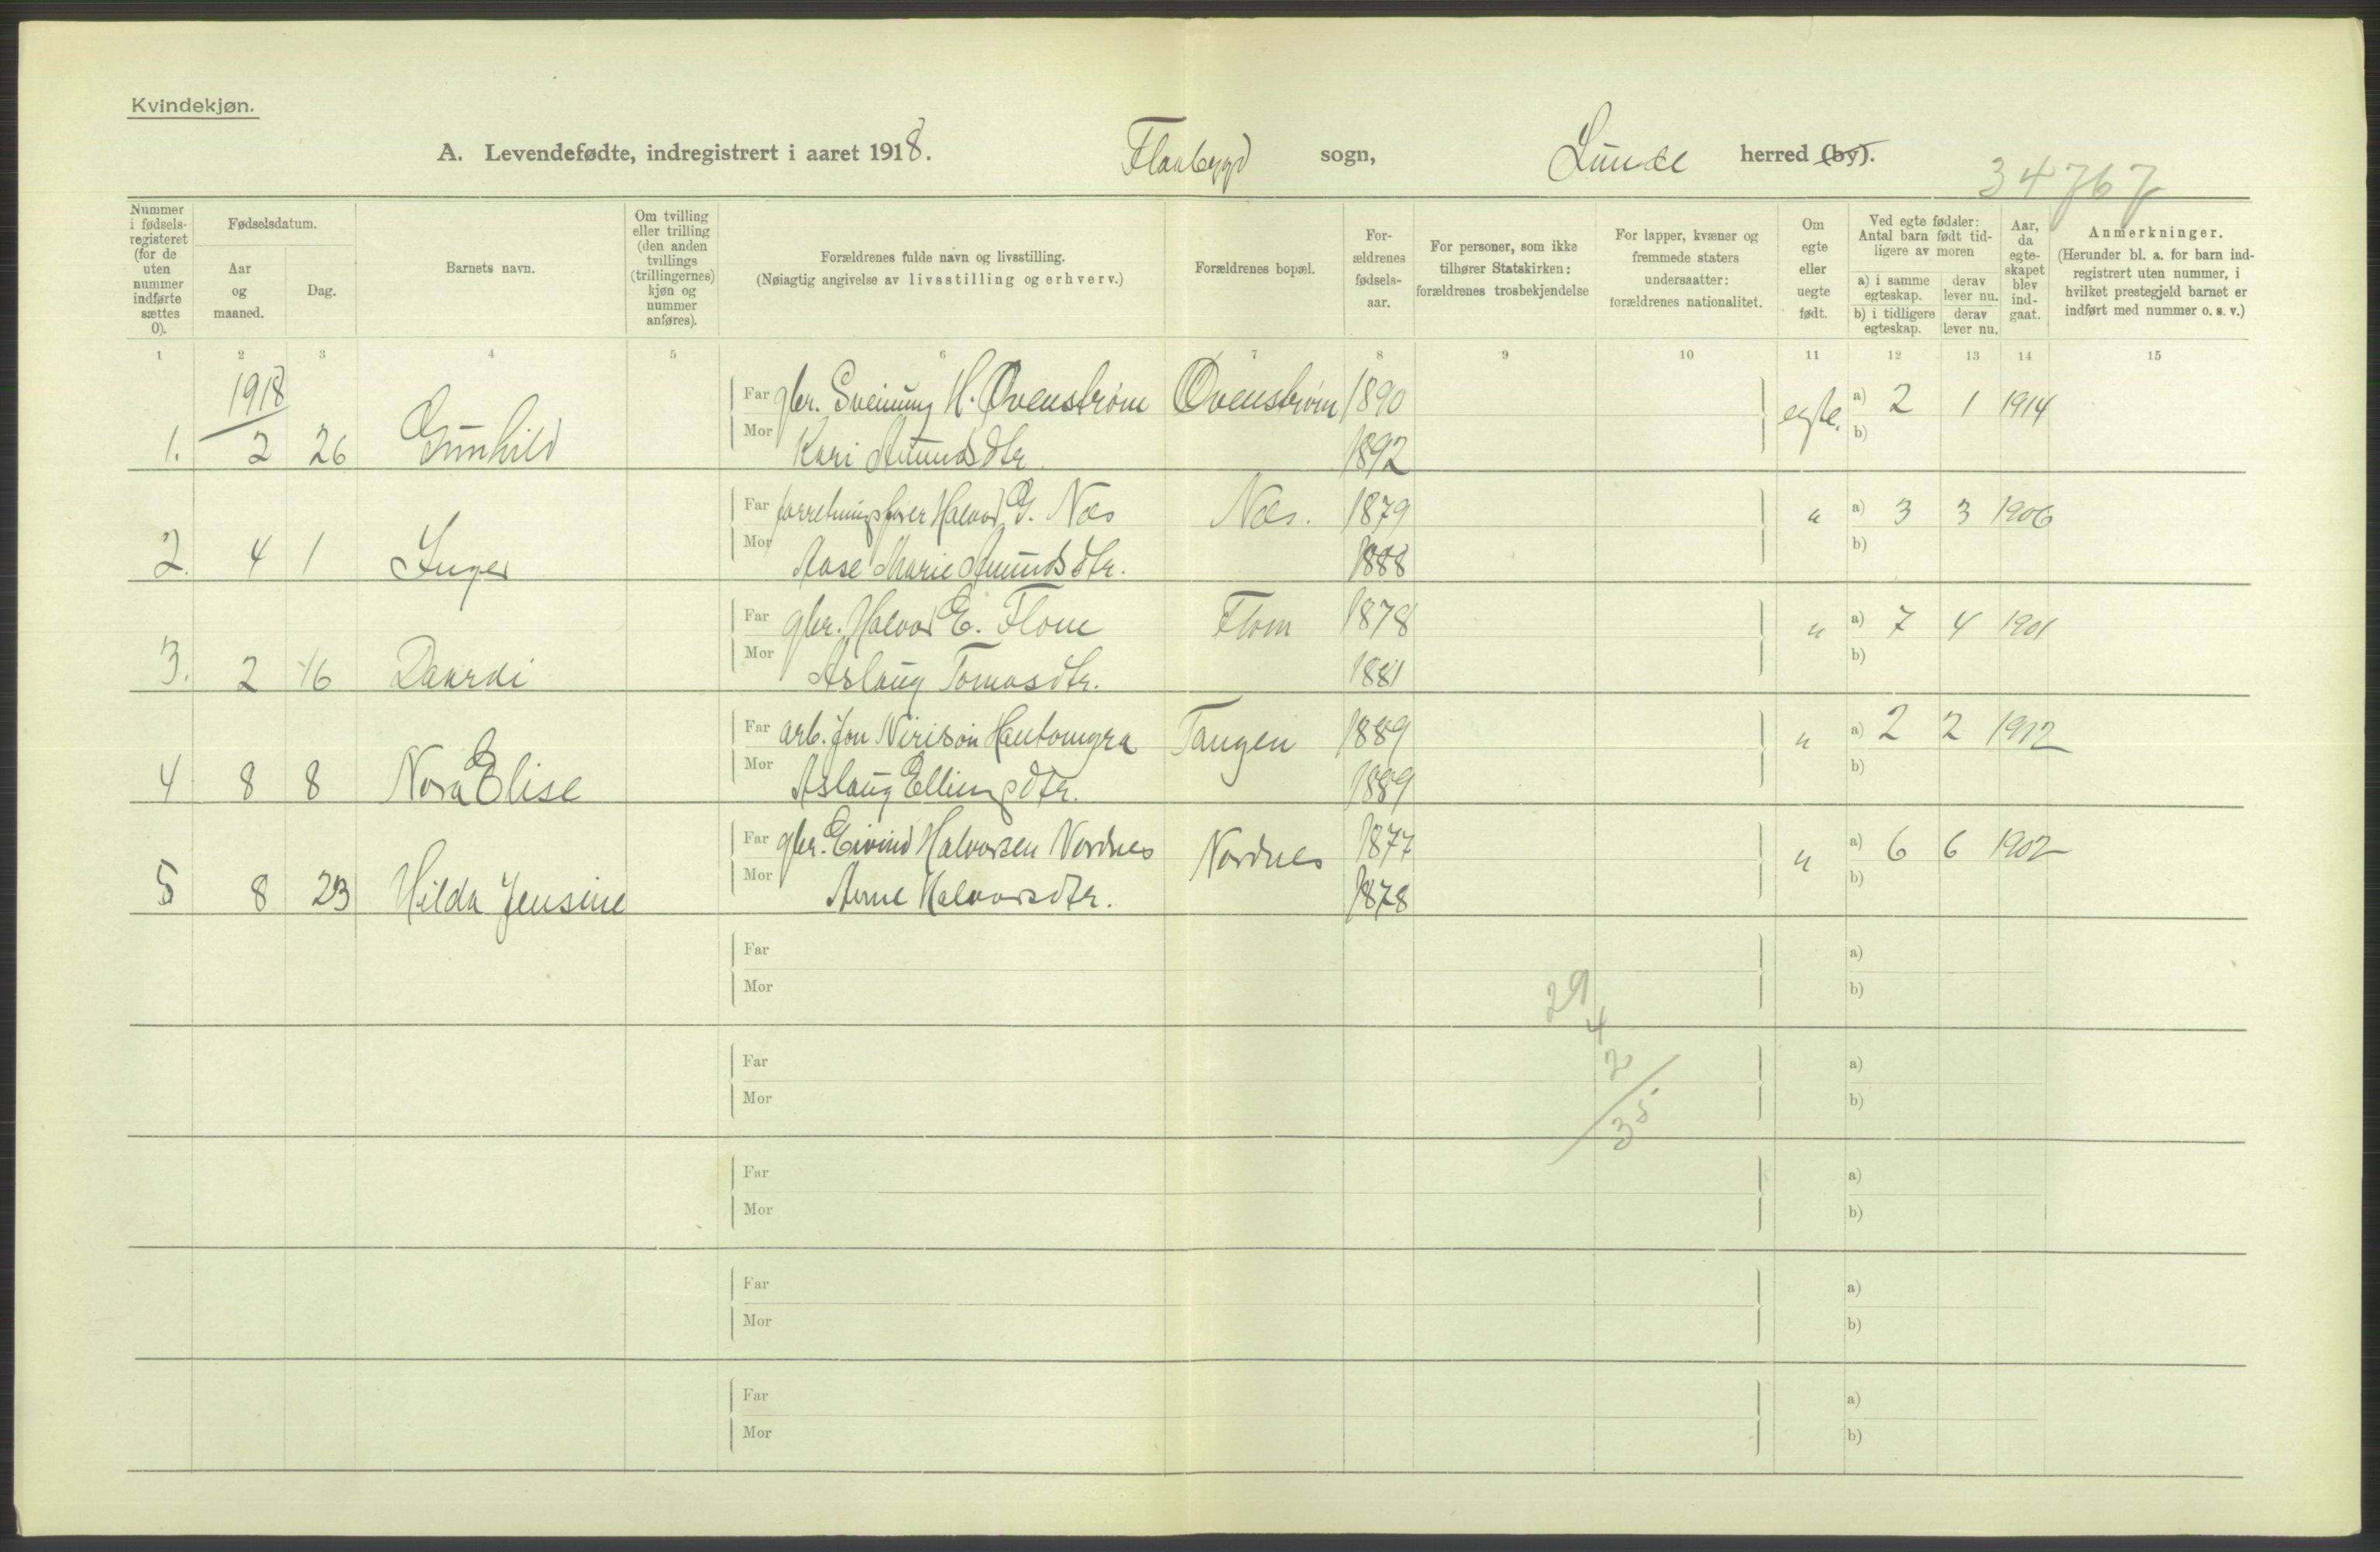 Kvindekjøn.
A. Levendefødte, indregistrert i aaret 1918. Flaabygd sogn, Lunde herred (by).
34767
Nummer i fødselsregisteret (for de uten nummer indførte sættes 0).
Fødselsdatum.
Aar og maaned.
Dag.
Barnets navn.
Om tvilling eller trilling (den anden tvillings (trillingernes) kjøn og nummer anføres).
Forældrenes fulde navn og livsstilling.
(Nøiagtig angivelse av livsstilling og erhverv.)
Forældrenes bopæl.
Forældrenes fødselsaar.
For personer, som ikke tilhører Statskirken: forældrenes trosbekjendelse
For lapper, kvæner og fremmede staters undersaatter: forældrenes nationalitet.
Om egte eller uegte født.
Ved egte fødsler: Antal barn født tidligere av moren
a) i samme egteskap. derav lever nu.
b) i tidligere egteskap. derav lever nu.
Aar, da egteskapet blev indgaat.
Anmerkninger.
(Herunder bl. a. for barn indregistrert uten nummer, i hvilket prestegjeld barnet er indført med nummer o. s. v.)
1 2 3 4 5 6 7 8 9 10 11 12 13 14 15
1918
Far gbr. Sveinung H. Ovenstrøm Ovenstrøm 1890 egte. a) 2 1 1914
1. 2 26 Gunhild Mor Kari Amundsdtr. 1892 b)
Far forretningsfører Halvor G. Næs Næs. 1879 " a) 3 3 1906
2. 4 1 Inger Mor Aase Marie Amundsdtr. 1888 b)
Far gbr. Halvor E. Flom Flom 1878 " a) 7 4 1901
3. 2 16 Daardi Mor Aslaug Tomasdtr. 1881 b)
Far arb. Jon Nirison Tangen 1889 " a) 2 2 1912
4 8 8 Nora Elise Mor Aslaug Ellingsdtr. 1889 b)
Far gbr. Eivind Halvorsen Nordnes Nordnes 1877 " a) 6 6 1902
5 8 23 Hilda Jensine Mor Anne Halvorsdtr. 1878 b)
Far a)
Mor b)
29
4
2
35
Far a)
Mor b)
Far a)
Mor b)
Far a)
Mor b)
Far a)
Mor b)